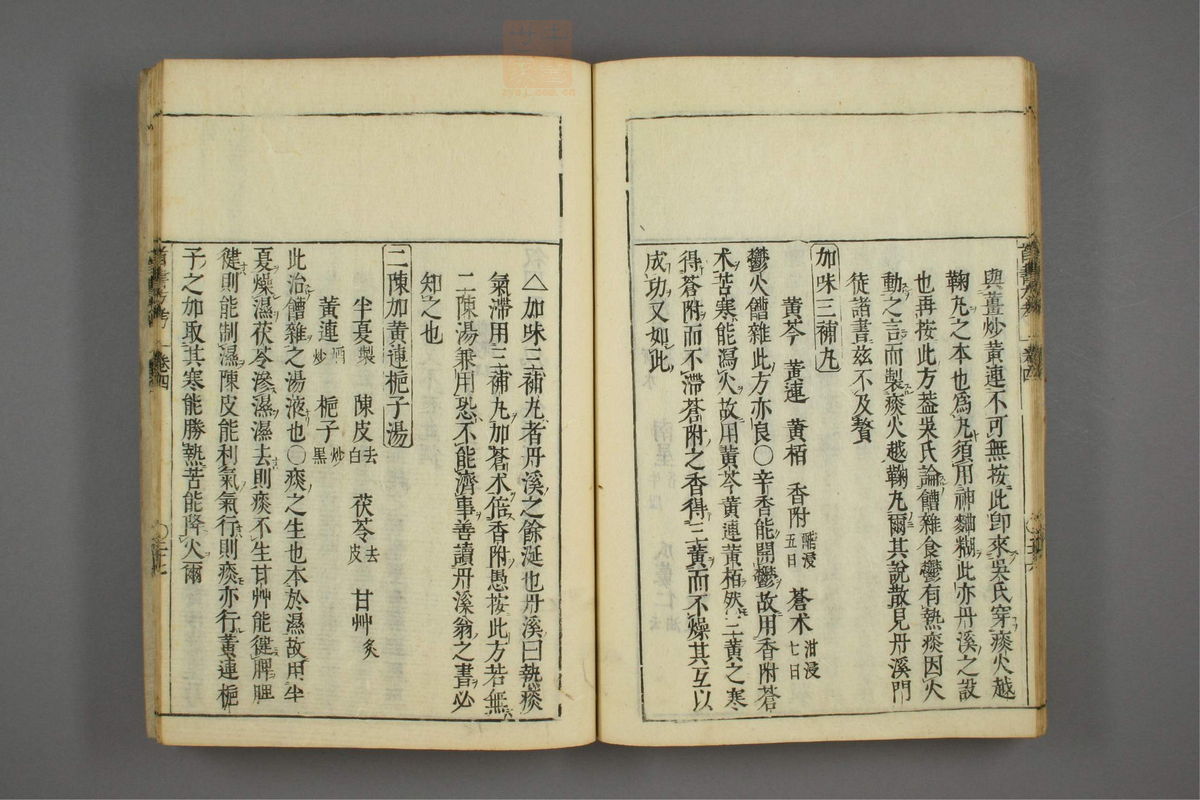 與薑炒黃連不可無按此卽來吳氏穿痰火越
鞠丸之本也爲丸須用神麯糊此亦丹溪之設
也再按此方葢吳氏論嘈雜食鬱有熱痰因火
動之言而製痰火越鞠丸爾其說散見丹溪門
徒諸書玆不及贅
加味三補丸
黃芩 黃連 黃栢 香附醋浸五日 蒼术泔浸七日
鬱火嘈雜此方亦良〇辛香能開鬱故用香附蒼
术苦寒能瀉火故用黃芩黃連黃栢然三黃之寒
得蒼附而不滯蒼附之香得三黃而不燥其互以
成功又如此
△加味三補丸者丹溪之餘涎也丹溪曰熱痰
氣滯用三補丸加蒼术倍香附愚按此方若無
二陳湯兼用恐不能濟事善讀丹溪翁之書必
知之也
二陳加黃連梔子湯
半夏製 陳皮去白 茯苓去皮 甘艸炙
黃連酒炒 梔子炒黑
此治嘈雜之湯液也〇痰之生也本於濕故用半
夏燥濕茯苓滲濕濕去則痰不生甘艸能健脾脾
健則能制濕陳皮能利氣氣行則痰亦行黃連梔
子之加取其寒能勝熱苦能降火爾
卷四